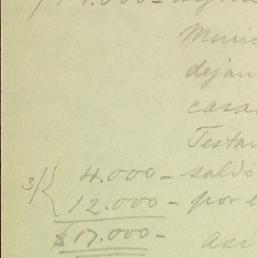 / 1.000 -
Munic
dejan
casa
Testa
3/ { 4.000 - saldo
12.000 - por e
$ 17.000 - así